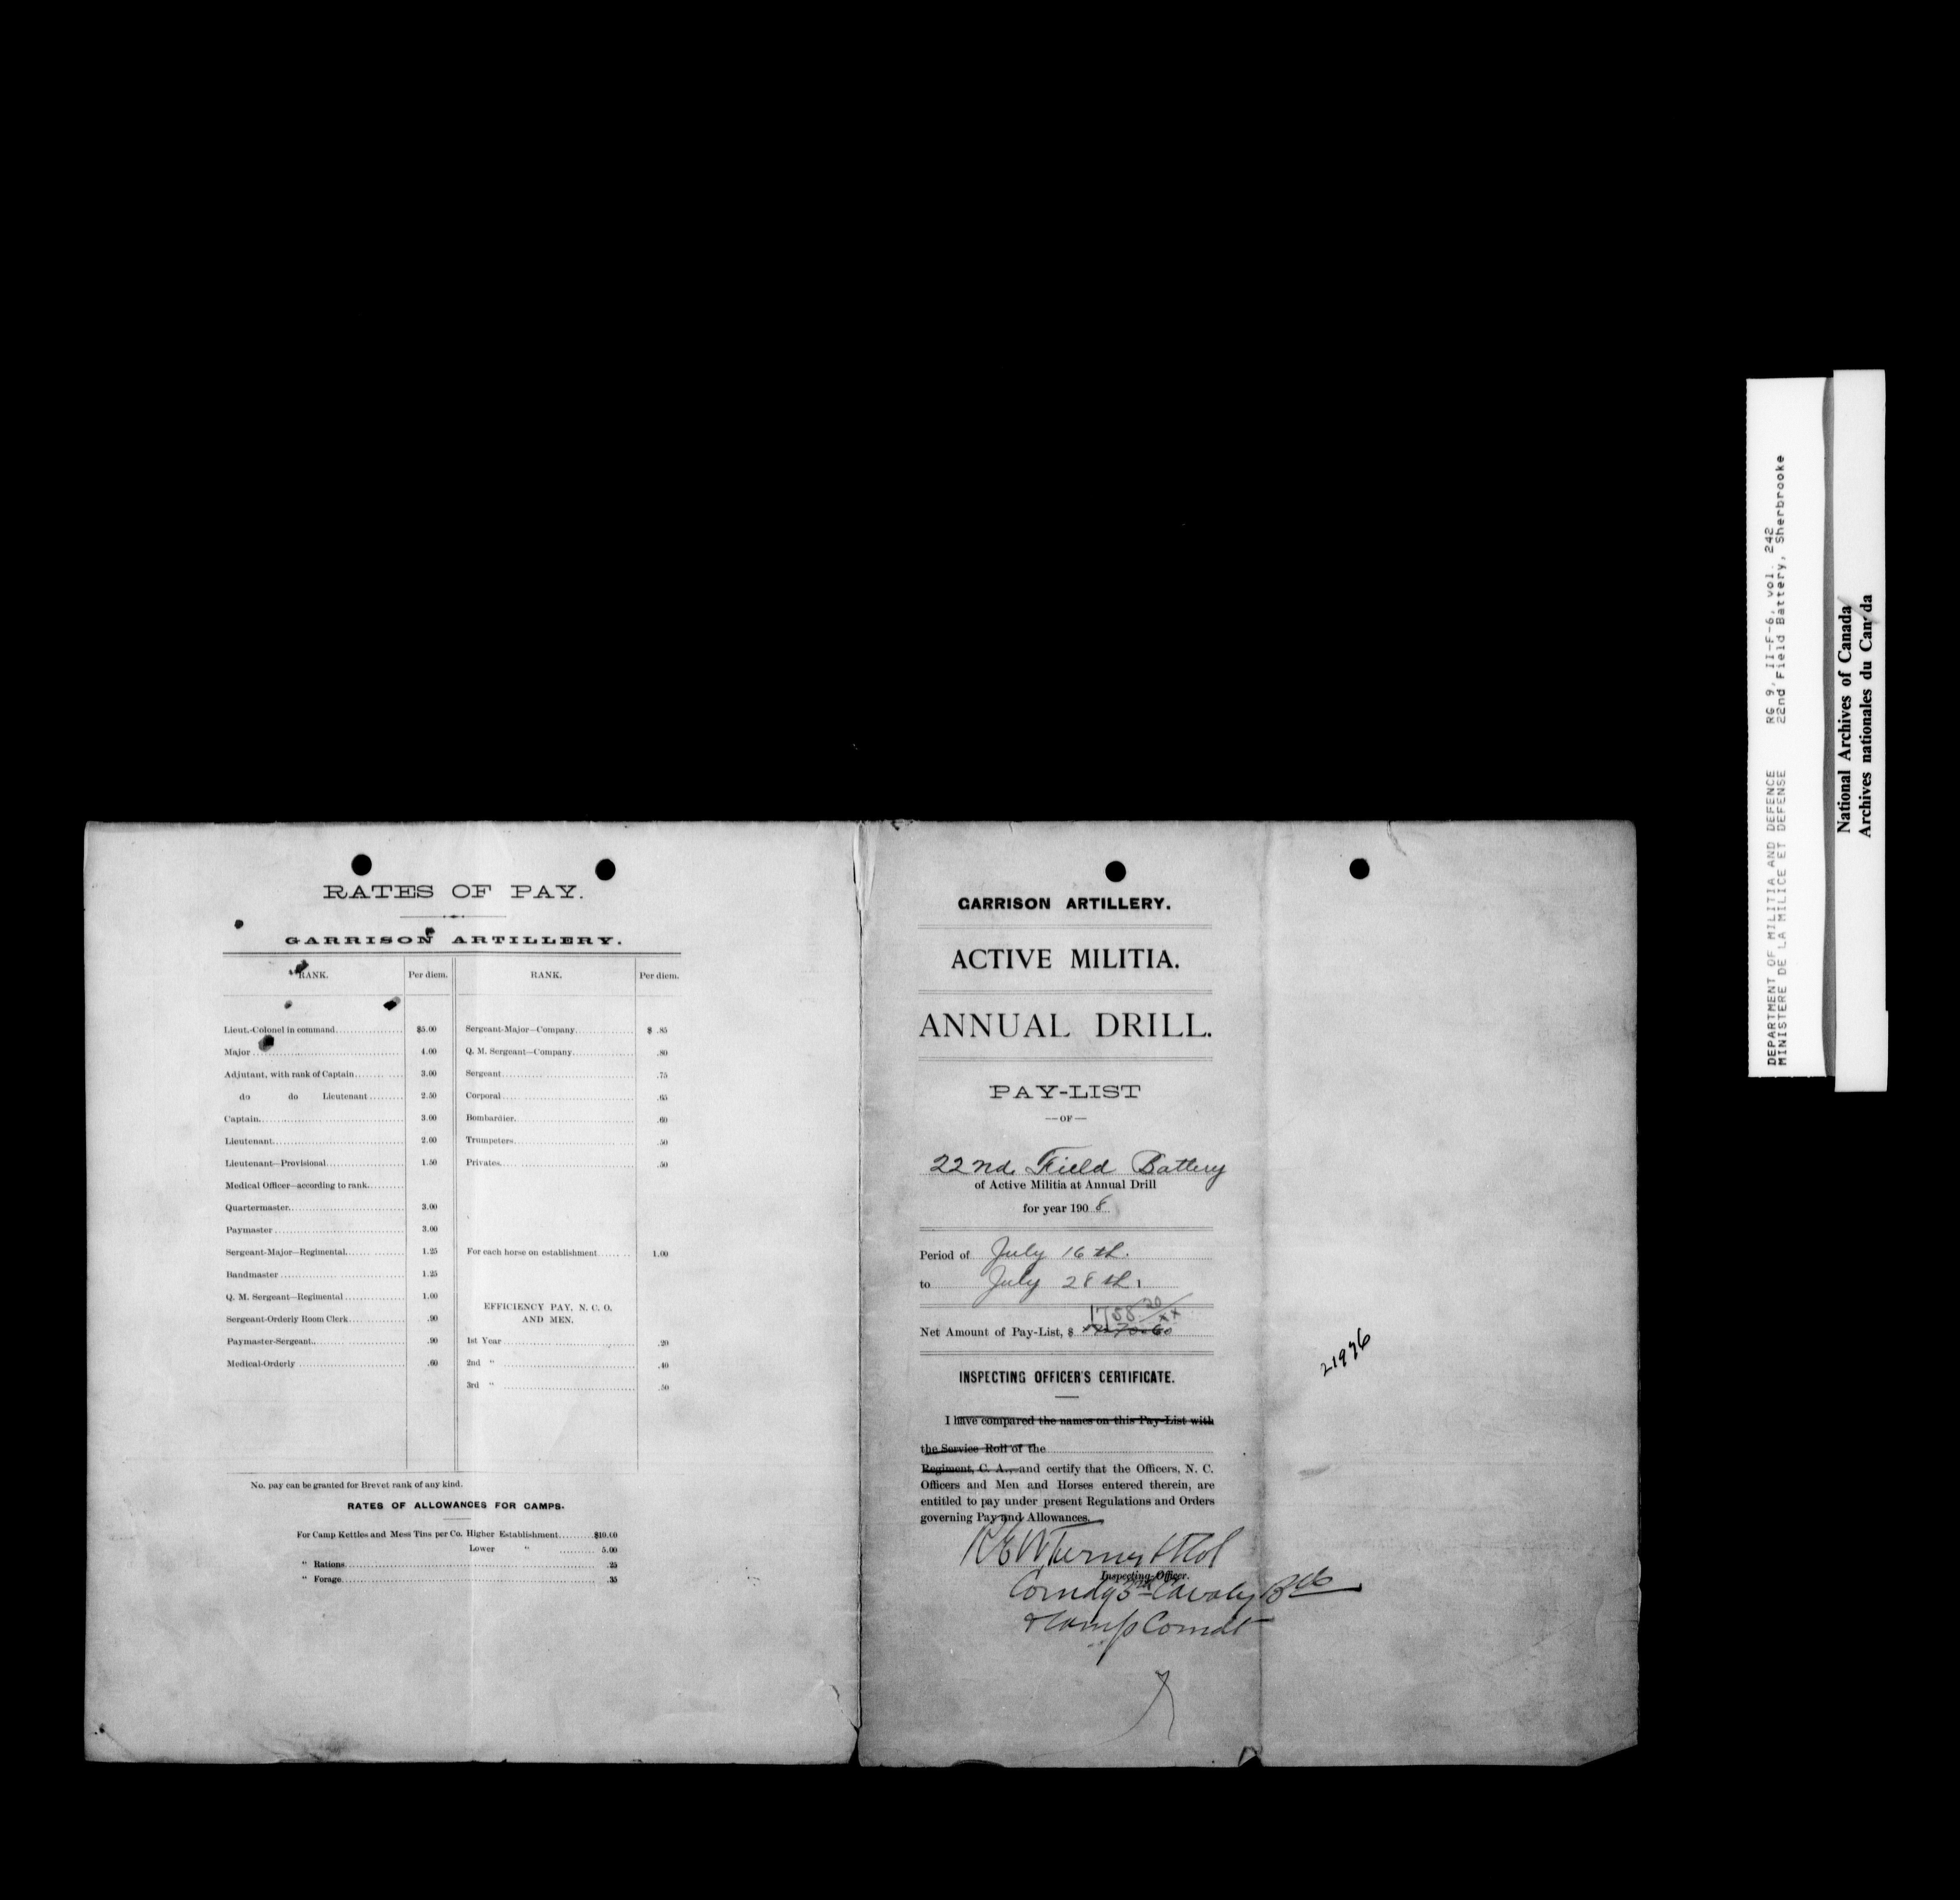 RATES OF PAY.
GARRISON ARTILLERY.
RANK. Per diem. RANK. Per diem.
Lieut.-Colonel in command $5.00 Sergeant-Major—Company $ .85
Major 4.00 Q. M. Sergeant—Company .80
Adjutant, with rank of Captain 3.00 Sergeant .75
do do Lieutenant 2.50 Corporal .65
Captain 3.00 Bombardier .60
Lieutenant 2.00 Trumpeters .50
Lieutenant—Provisional 1.50 Privates .50
Medical Officer—according to rank
Quartermaster 3.00
Paymaster 3.00
Sergeant-Major—Regimental 1.25 For each horse on establishment 1.00
Bandmaster 1.25
Q. M. Sergeant—Regimental 1.00 EFFICIENCY PAY, N. C. O.
AND MEN.
Sergeant-Orderly Room Clerk .90
Paymaster-Sergeant .90 1st Year .20
Medical-Orderly .60 2nd " .40
3rd " .50
No. pay can be granted for Brevet rank of any kind.
RATES OF ALLOWANCES FOR CAMPS.
For Camp Kettles and Mess Tins per Co. Higher Establishment $10.00
Lower " 5.00
" Rations .25
" Forage .35
GARRISON ARTILLERY.
ACTIVE MILITIA.
ANNUAL DRILL.
PAY-LIST
—OF—
22nd Field Battery
of Active Militia at Annual Drill
for year 1908
Period of July 16th.
to July 28th.
1758 20/xx
Net Amount of Pay-List, $
INSPECTING OFFICER'S CERTIFICATE.
I have compared the names on this Pay-List with
the Service Roll of the
Regiment, C. A., and certify that the Officers, N. C.
Officers and Men and Horses entered therein, are
entitled to pay under present Regulations and Orders
governing Pay and Allowances.
Inspecting Officer.
Comdg 3rd Cavalry Bde
& Camp Comdt
21976
DEPARTMENT OF MILITIA AND DEFENCE RG 9, II-F-6, vol. 242
MINISTERE DE LA MILICE ET DEFENSE 22nd Field Battery, Sherbrooke
National Archives of Canada
Archives nationales du Canada